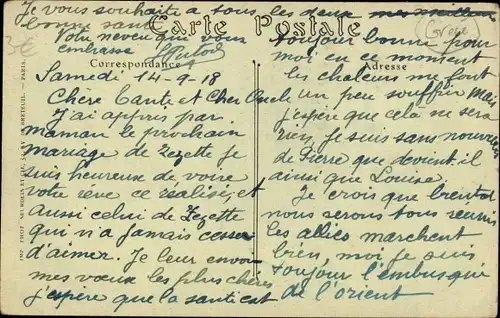 Je vous souhaite a tous les deux mes meilleurs
bonne santé
Votre neveu que vous
embrasse
Carte Postale
Correspondance
Adresse
3€
Samedi 14-9-18
Chère Tante et Cher Oncle
J'ai appris par
maman le prochain
mariage de Zezette je
suis heureuse de voire
votre rêve ce réalisé, et
aussi celui de Zezette
qui n'a jamais cesser
d'aimer. Je leur envoie
mes vœux les plus chères
j'espère que la santé est
toujour bonne pour
moi en ce moment
les chaleurs me font
un peu souffrir mai
j'espère que cela ne sera
rien, je suis sans nouvelle
de Pierre que devient il
ainsi que Louise.
Je crois que bientot
nous serons tous reunis
les alliés marchent
bien, moi je suis
toujour l'embusqué
de l'orient
IMP. PHOT. NEURDEIN ET CIE. PARIS.